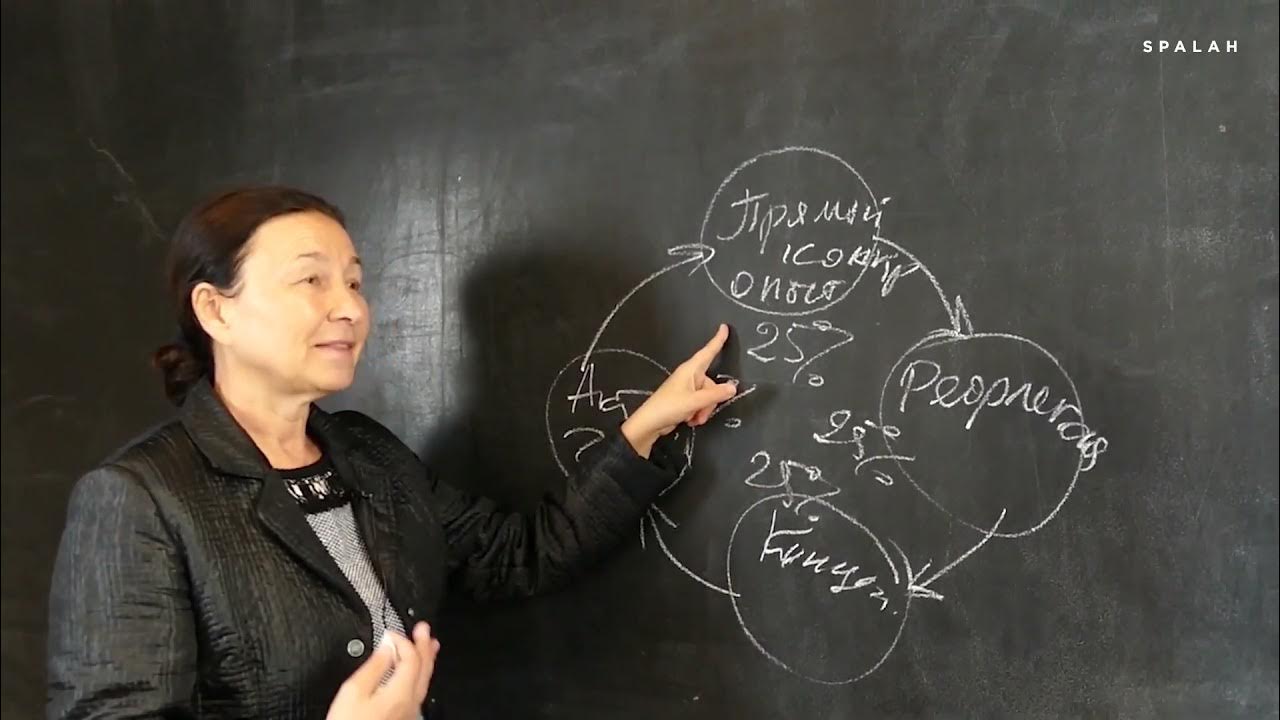 SPALAH
Прямой
конкр
опыт
25%
Рефлексия
25%
25%
Концеп.
Ак
%